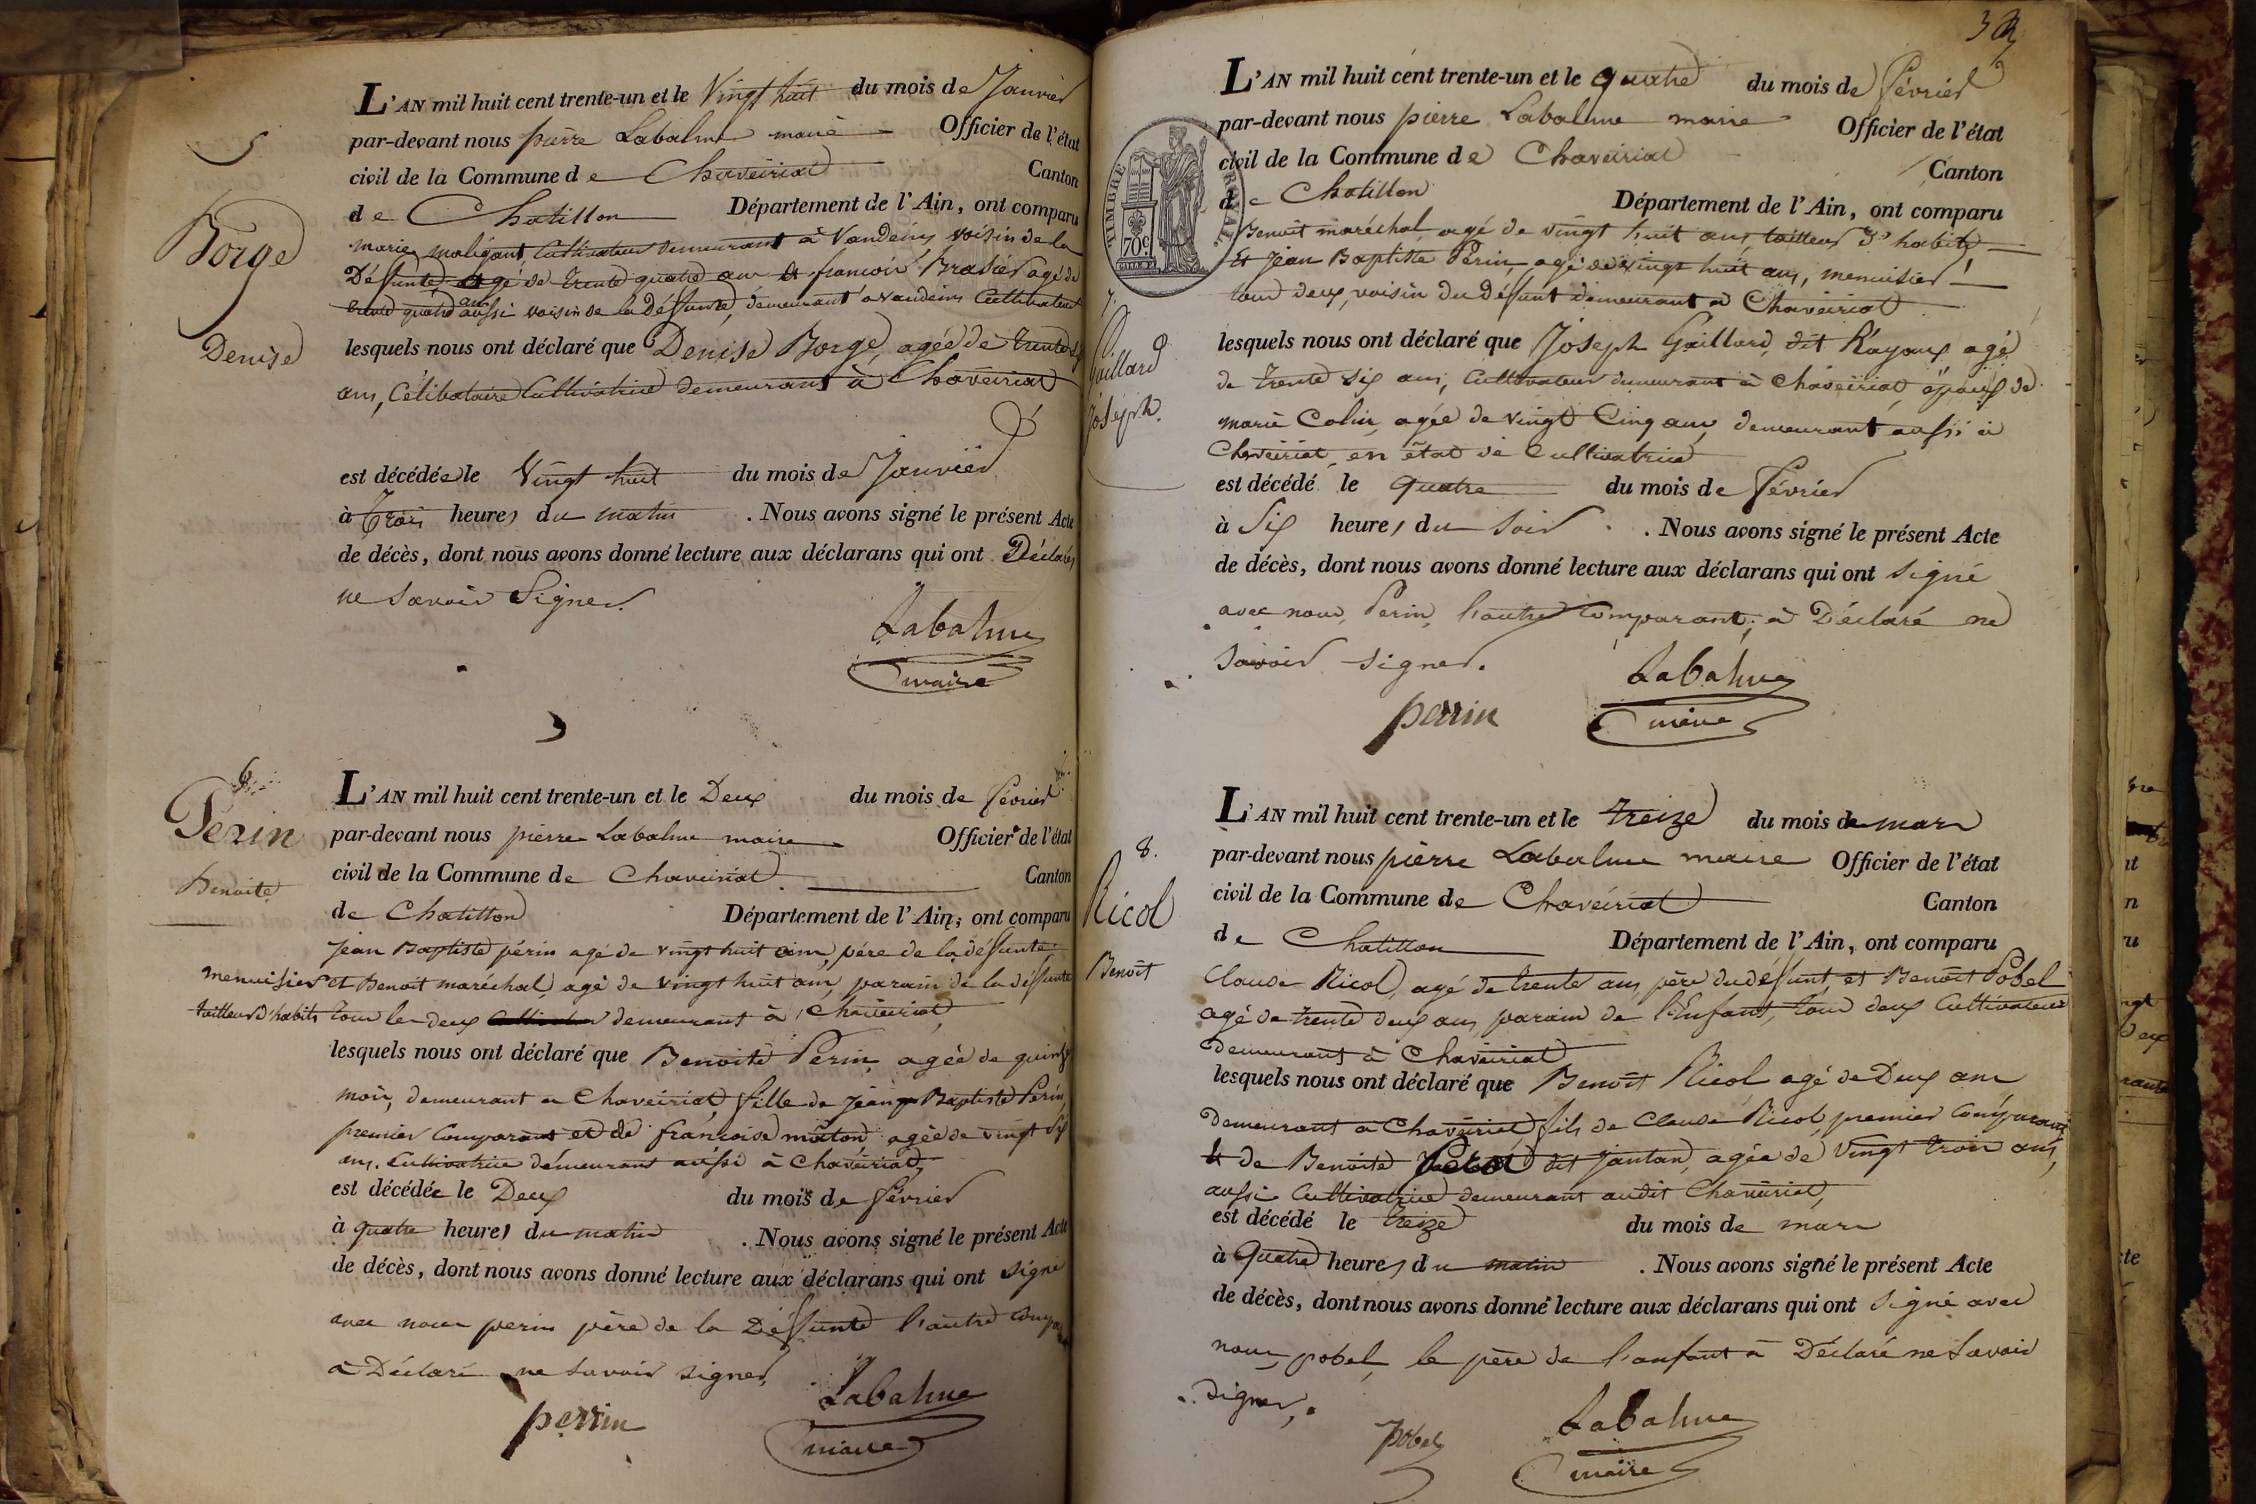 5
Borge
Denise
L'AN mil huit cent trente-un et le Vingt huit du mois de Janvier
par-devant nous pierre Labalme maire Officier de l'état
civil de la Commune de Chaveiriat Canton
de Chatillon Département de l'Ain, ont comparu
marie maligant, Cultivateur demeurant à Vandeins voisin de la
Défunte agé de trente quatre ans et francois Brasier agé de
trente quatre ans aussi voisin de la défunte, demeurant a vandeins Cultivateur
lesquels nous ont déclaré que Denise Borge, agée de trente six
ans, Célibataire Cultivatrice demeurant à Chaveiriat
est décédée le Vingt huit du mois de Janvier
à Trois heures du matin . Nous avons signé le présent Acte
de décès, dont nous avons donné lecture aux déclarans qui ont Déclarés
ne Savoir Signer.
Labalme
maire
6
Perin
Benoite
L'AN mil huit cent trente-un et le Deux du mois de février
par-devant nous pierre Labalme maire Officier de l'état
civil de la Commune de Chaveiriat Canton
de Chatillon Département de l'Ain, ont comparu
Jean Baptiste périn agé de vingt huit ans, pére de la défunte
menuisier et Benoit maréchal, agé de vingt huit ans, parain de la défunte
tailleur d'habits tous les deux demeurant à Chaveiriat,
lesquels nous ont déclaré que Benoite Perin, agée de quinze
mois, demeurant a Chaveiriat, fille de Jean Baptiste Périn
premier Comparant et de françoise mâton agée de vingt six
ans. Cultivatrice demeurant aussi à Chaveiriat,
est décédée le Deux du mois de février
à quatre heures du matin . Nous avons signé le présent Acte
de décès, dont nous avons donné lecture aux déclarans qui ont signé
avec nous perin père de la Défunte l'autre
a Déclaré ne savoir signer,
perrin
Labalme
maire
3
L'AN mil huit cent trente-un et le quatre du mois de Février
par-devant nous pierre Labalme maire Officier de l'état
civil de la Commune de Chaveiriat Canton
de Chatillon Département de l'Ain, ont comparu
Benoit maréchal, agé de vingt huit ans, tailleur d'habits,
Et Jean Baptiste Périn, agé de vingt huit ans, menuisier,
tous deux, voisin du défunt demeurant a Chaveiriat
TIMBRE ROYAL
70c
7.
Gaillard
Joseph.
lesquels nous ont déclaré que Joseph Gaillard, dit Rayoux agé
de trente six ans, Cultivateur demeurant à Chaveiriat, époux de
marie Colin, agée de vingt Cinq ans, demeurant aussi à
Chaveiriat, en état de Cultivatrice
est décédé le quatre du mois de février
à Six heures du Soir . Nous avons signé le présent Acte
de décès, dont nous avons donné lecture aux déclarans qui ont signé
avec nous, Perin, l'autre Comparant, a Déclaré ne
Savoir signer.
perrin
Labalme
maire
8.
Ricol
Benoît
L'AN mil huit cent trente-un et le treize du mois de mars
par-devant nous pierre Labalme maire Officier de l'état
civil de la Commune de Chaveiriat Canton
de Chatillon Département de l'Ain, ont comparu
Claude Ricol, agé de trente ans, père du défunt, et Benoît Pobel
agé de trente deux ans, parain de l'Enfant, tous deux Cultivateurs
demeurant à Chaveiriat
lesquels nous ont déclaré que Benoît Ricol agé de Deux ans
demeurant a Chaveiriat, fils de Claude Ricol, premier Comparant
Et de Benoite dit Jantan, agée de Vingt trois ans,
aussi Cultivatrice demeurant audit Chaveiriat,
est décédé le treize du mois de mars
à Quatre heures du matin . Nous avons signé le présent Acte
de décès, dont nous avons donné lecture aux déclarans qui ont signé avec
nous, pobel, le père de l'enfant a Déclaré ne Savoir
signer,
pobel
Labalme
maire